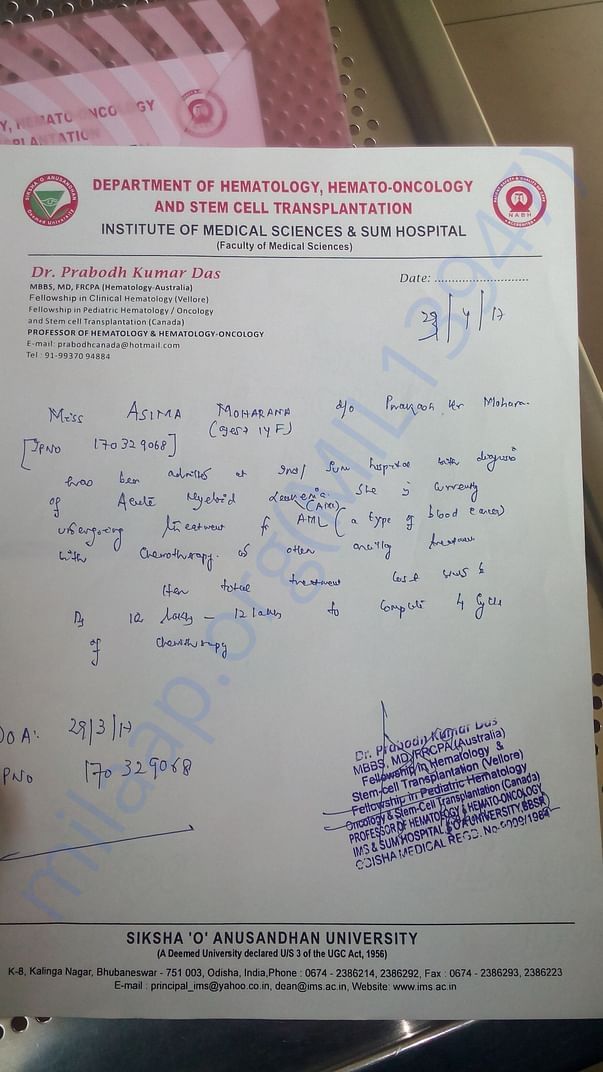 Y, HEMATO-ONCOLOGY
PLANTATION
SIKSHA 'O' ANUSANDHAN
Deemed University
NABH
DEPARTMENT OF HEMATOLOGY, HEMATO-ONCOLOGY
AND STEM CELL TRANSPLANTATION
INSTITUTE OF MEDICAL SCIENCES & SUM HOSPITAL
(Faculty of Medical Sciences)
Dr. Prabodh Kumar Das
MBBS, MD, FRCPA (Hematology-Australia)
Fellowship in Clinical Hematology (Vellore)
Fellowship in Pediatric Hematology / Oncology
and Stem cell Transplantation (Canada)
PROFESSOR OF HEMATOLOGY & HEMATOLOGY-ONCOLOGY
E-mail: prabodhcanada@hotmail.com
Tel : 91-99370 94884
Date: ............................
29/4/17
Miss ASIMA MOHARANA d/o Kr Mohara
14 F)
[IPNO 170329068]
has been at Sum hospital with
of Acute Myeloid Leukemia (AML) She is currently
undergoing treatment for AML (a type of blood cancer)
with Chemotherapy & other
Her total treatment cost
Rs 10 lakhs - 12 lakhs to complete 4 cycle
of chemotherapy
DOA: 29/3/17
IPNO 170329068
Dr. Prabodh Kumar Das
MBBS, MD, FRCPA (Australia)
Fellowship in Hematology &
Stem-cell Transplantation (Vellore)
Fellowship in Pediatric Hematology
Oncology & Stem-Cell Transplantation (Canada)
PROFESSOR OF HEMATOLOGY & HEMATO-ONCOLOGY
IMS & SUM HOSPITAL, UNIVERSITY, BBSR
ODISHA MEDICAL REGD. No.
milaap.org(MIL139471)
SIKSHA 'O' ANUSANDHAN UNIVERSITY
(A Deemed University declared U/S 3 of the UGC Act, 1956)
K-8, Kalinga Nagar, Bhubaneswar - 751 003, Odisha, India,Phone : 0674 - 2386214, 2386292, Fax : 0674 - 2386293, 2386223
E-mail : principal_ims@yahoo.co.in, dean@ims.ac.in, Website: www.ims.ac.in